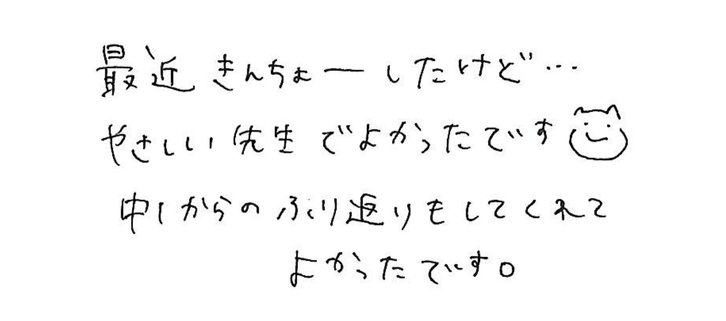 最近 きんちょーしたけど…
やさしい先生でよかったです
中1からのふり返りもしてくれて
よかったです。